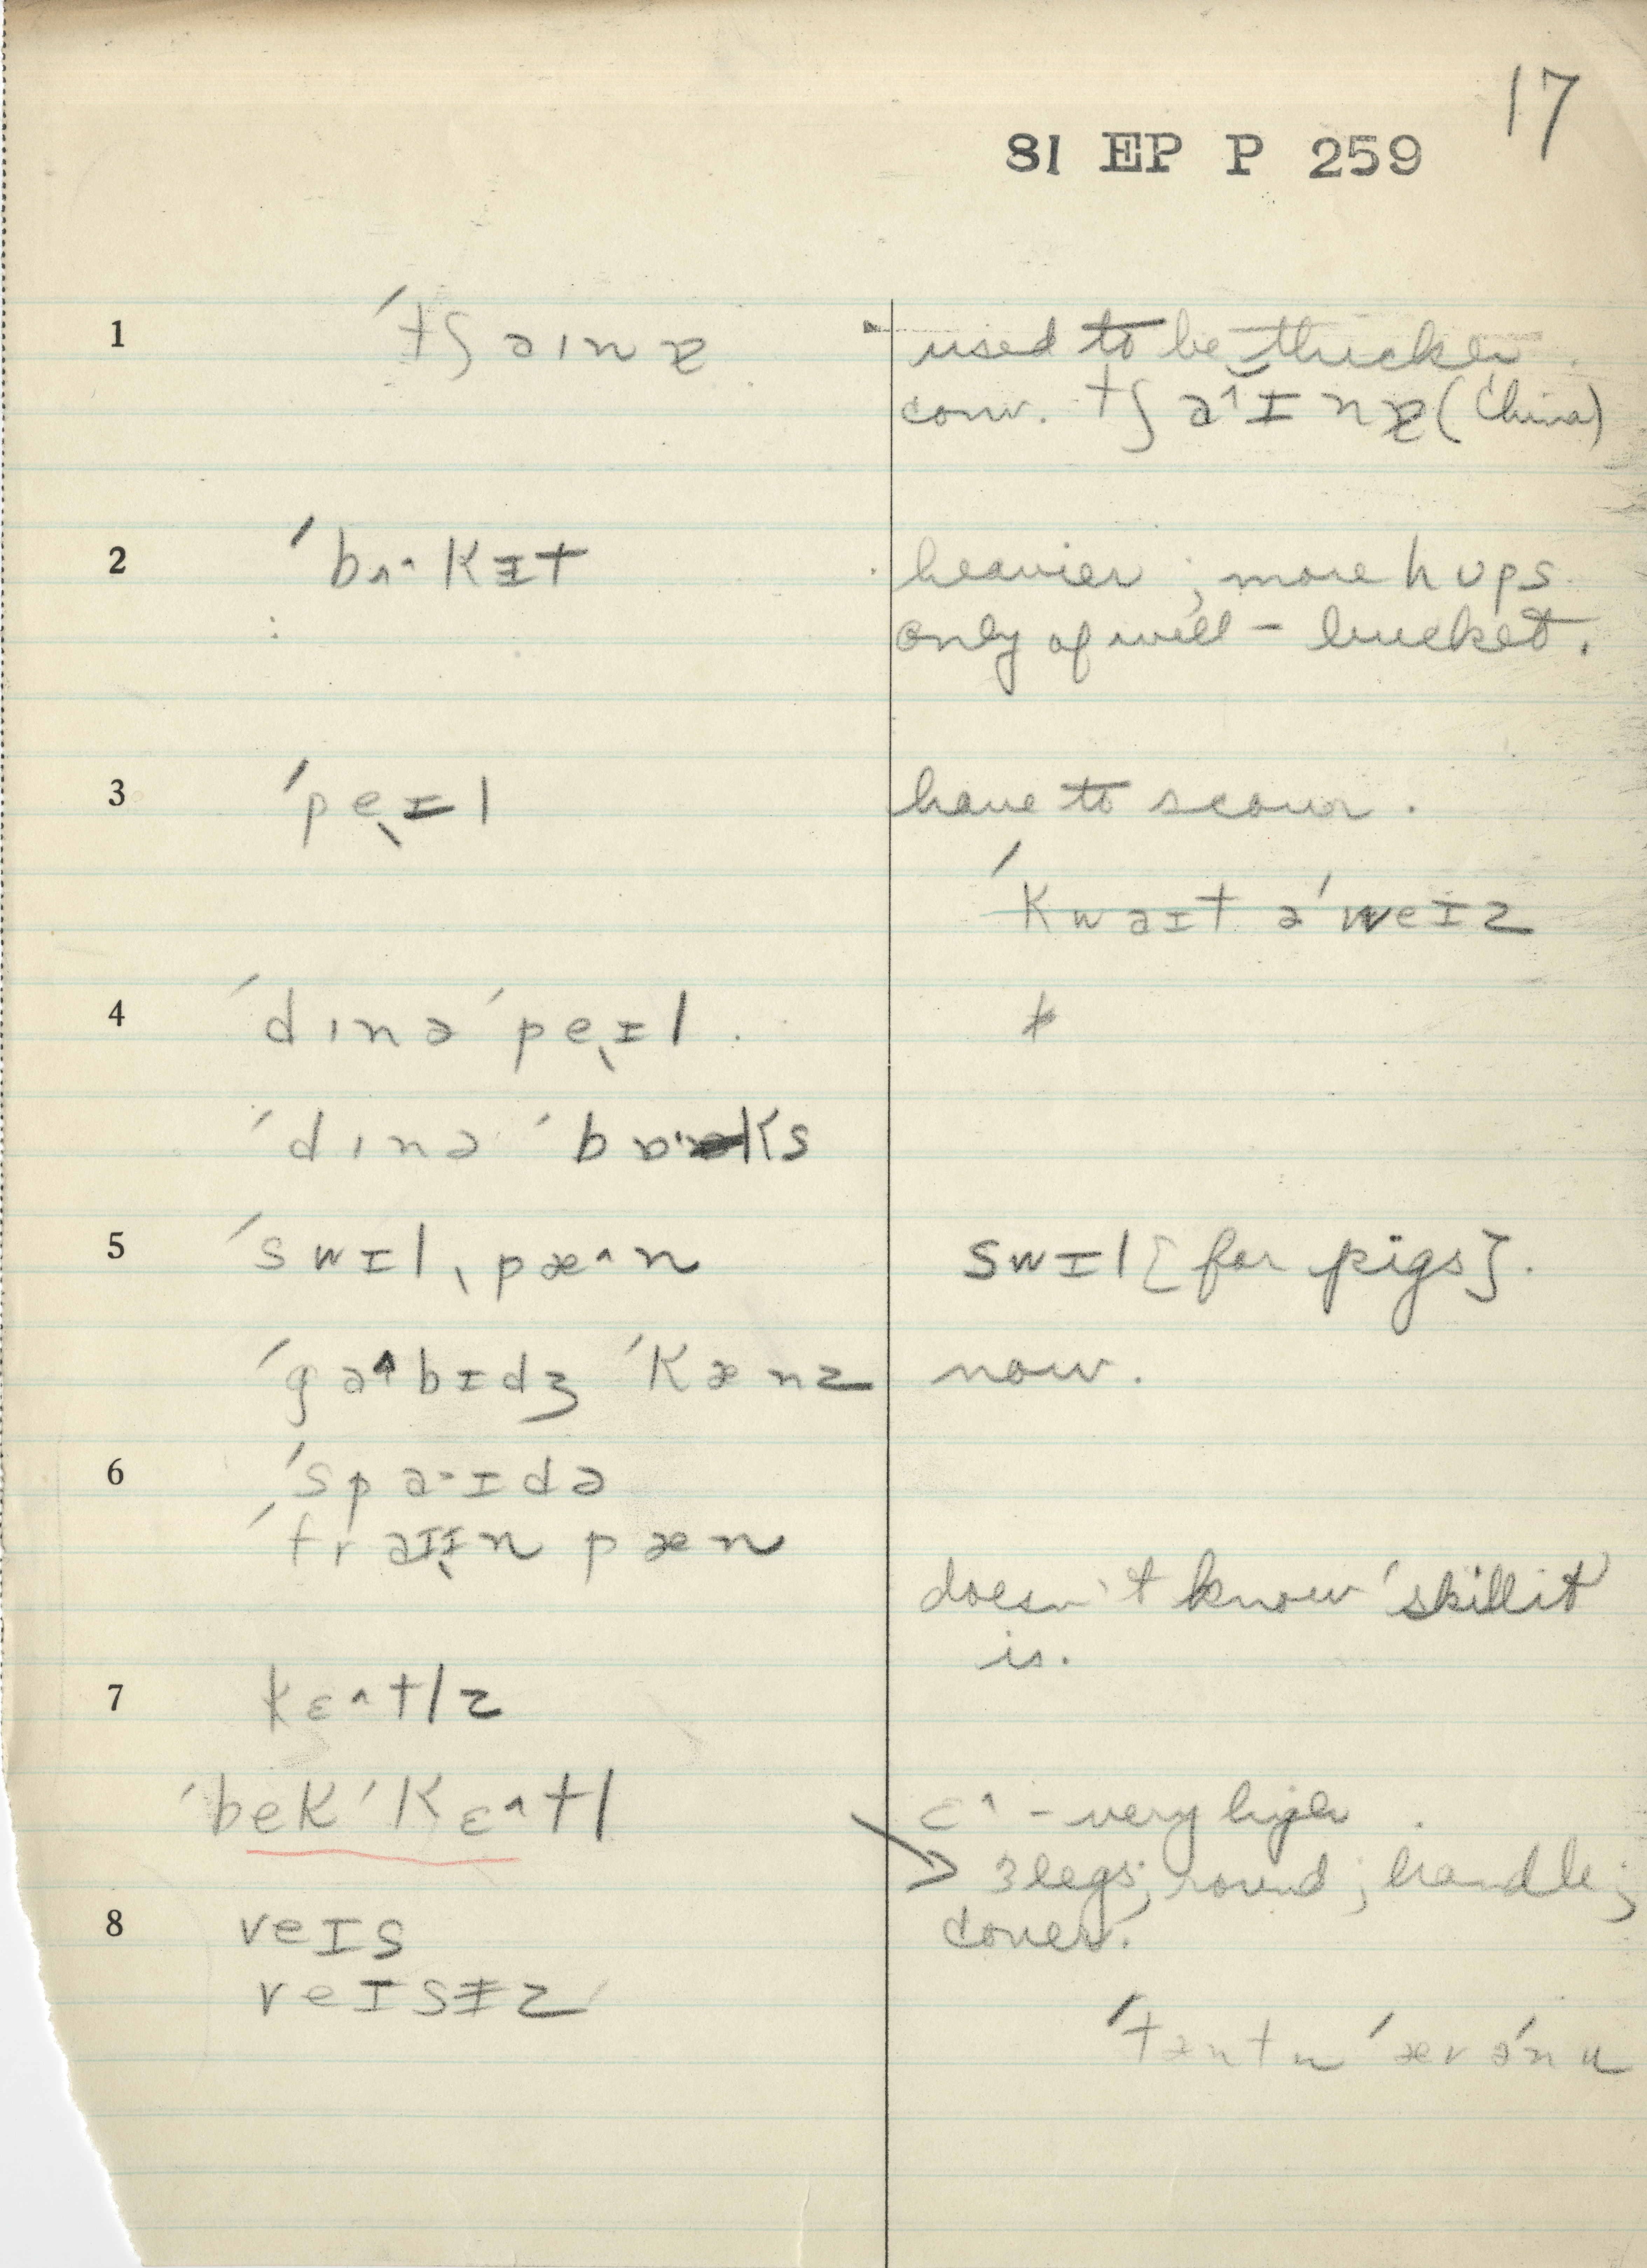 17
81 EP P 259
1 ˈtʃaɪnɐ used to be thicker.
conv. tʃa˄ɪnɐ (China)
2 ˈbʌ˄kɪt heavier; more hups
only of well - bucket.
3 ˈpeɪl have to scour.
ˈkwaɪt əˈweɪz
4 ˈdɪnə ˈpeɪl.
ˈdɪnə ˈbɒks
5 ˈswɪlˌpæ˄n swɪl [for pigs].
ˈga˄bɪdʒ ˈkænz now.
6 ˈspa·ɪdə
ˈfraɪɪn pæn
doesn't know 'skillit'
is.
7 kɛ˄tlz
ˈbek ˈkɛ˄tl ɛ˄ - very high.
3 legs; round; handle;
cover.
8 veɪs
veɪsɨz